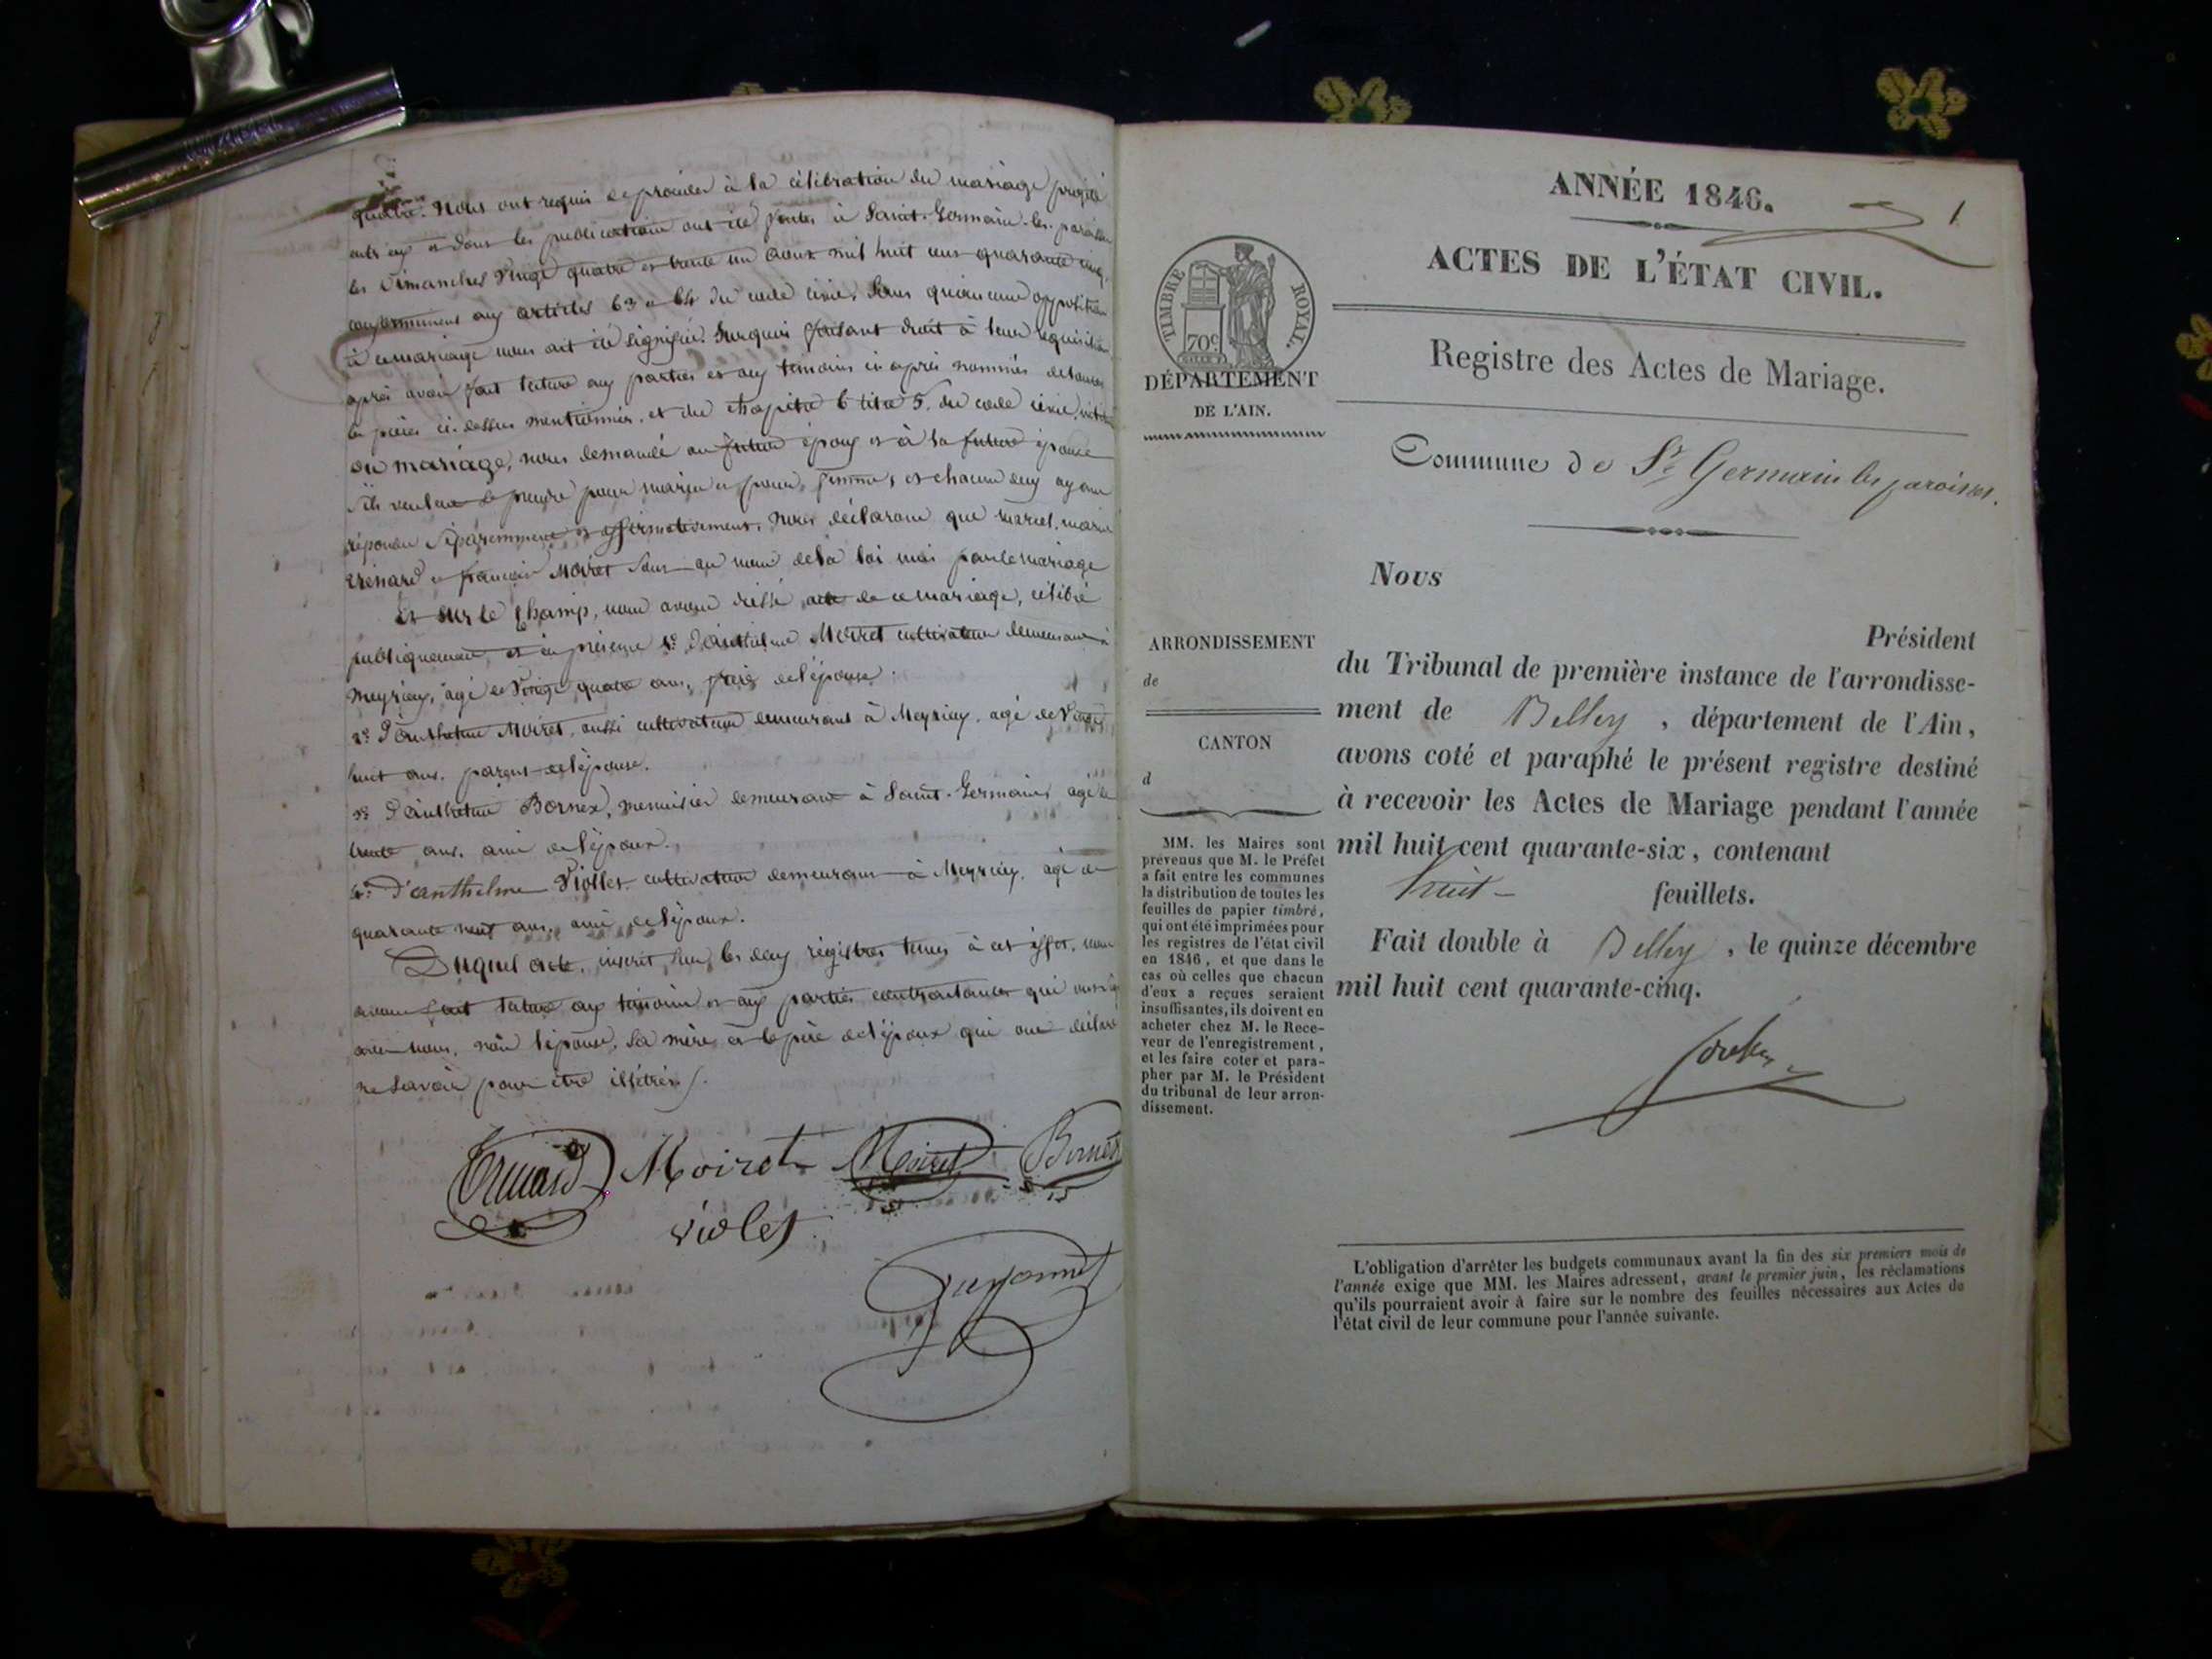 quatre. Nous ont requis de procéder à la célébration du mariage projeté
entr'eux et dont les publications ont été faites à Saint-Germain-les-paroisses
les Dimanches vingt quatre et trente un aoux mil huit cent quarante cinq,
conformément aux articles 63 et 64 du code civil. Sans qu'aucune opposition
à ce mariage nous ait été signifiée. Surquoi faisant droit à leur réquisition
après avoir fait lecture aux parties et aux témoins ci après nommés de toutes
les pièces ci-dessus mentionnées, et du chapitre 6 titre 5. du code civil,
du mariage, nous demandé au futur époux et à la future épouse
s'ils veulent se prendre pour mari et pour femme, et chacun deux ayant
répondu séparemment et affirmativement, nous déclarons que marie
trenard et Moiret sont au nom de la loi unis par le mariage
Et sur le champ, nous avons dressé acte de ce mariage, célébré
publiquement, et en présence 1º D'anthelme Moiret cultivateur demeurant à
Meyrieu, agé de vingt quatre ans, frère de l'épouse.
2º D'anthelme Moiret, aussi cultivateur demeurant à Meyrieu, agé de vingt
huit ans, parent de l'épouse.
3º D'anthelme Bornex, menuisier demeurant à Saint-Germain, agé de
trente ans, ami de l'époux.
4º D'anthelme Violles cultivateur demeurant à Meyrieu, agé de
quarante neuf ans, ami de l'époux.
Duquel acte, inscrit sur les deux régistres tenus à cet effet, nous
avons fait lecture aux témoins et aux parties contractantes qui ont
avec nous, non l'épouse, sa mère et le père de l'époux qui ont déclaré
ne savoir pour être illétrés.
Trenard Moiret Moiret Bornex
violet
ANNÉE 1846.
1
ACTES DE L'ÉTAT CIVIL.
Registre des Actes de Mariage.
TIMBRE ROYAL.
70c
DÉPARTEMENT
DE L'AIN.
Commune de St Germain les paroisses.
Nous
Président
du Tribunal de première instance de l'arrondisse-
ment de Belley, département de l'Ain,
avons coté et paraphé le présent registre destiné
à recevoir les Actes de Mariage pendant l'année
mil huit cent quarante-six, contenant
huit feuillets.
Fait double à Belley, le quinze décembre
mil huit cent quarante-cinq.
ARRONDISSEMENT
de
CANTON
d
MM. les Maires sont
prévenus que M. le Préfet
a fait entre les communes
la distribution de toutes les
feuilles de papier timbré,
qui ont été imprimées pour
les registres de l'état civil
en 1846, et que dans le
cas où celles que chacun
d'eux a reçues seraient
insuffisantes, ils doivent en
acheter chez M. le Rece-
veur de l'enregistrement,
et les faire coter et para-
pher par M. le Président
du tribunal de leur arron-
dissement.
L'obligation d'arrêter les budgets communaux avant la fin des six premiers mois de
l'année exige que MM. les Maires adressent, avant le premier juin, les réclamations
qu'ils pourraient avoir à faire sur le nombre des feuilles nécessaires aux Actes de
l'état civil de leur commune pour l'année suivante.